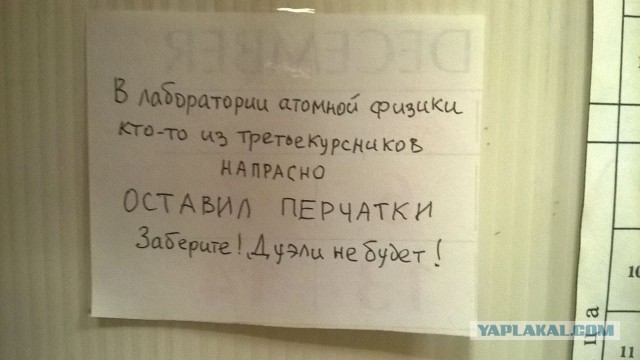 DECEMBER
В лаборатории атомной физики
кто-то из третьекурсников
НАПРАСНО
ОСТАВИЛ ПЕРЧАТКИ
Заберите! Дуэли не будет!
10
11
ца
YAPLAKAL.COM